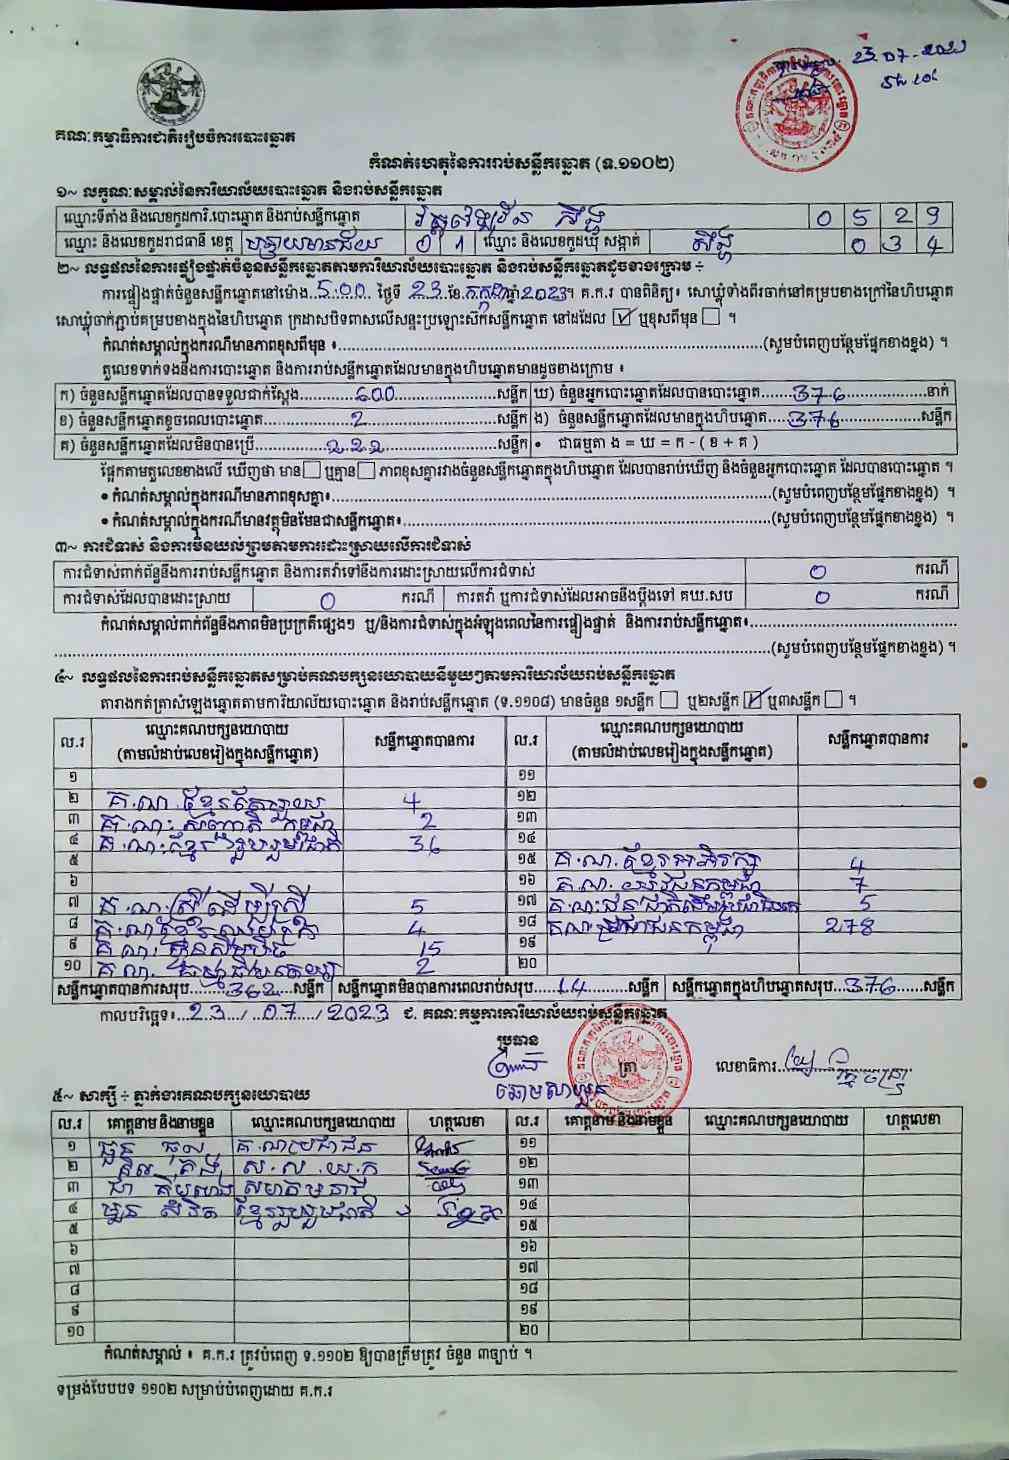 23.07.2023
គណៈកម្មាធិការជាតិរៀបចំការបោះឆ្នោត
កំណត់ហេតុនៃការរាប់សន្លឹកឆ្នោត (ទ.១១០២)
១~ លក្ខណៈសម្គាល់នៃការិយាល័យបោះឆ្នោត និងរាប់សន្លឹកឆ្នោត
ឈ្មោះទីតាំង និងលេខកូដការិ.បោះឆ្នោត និងរាប់សន្លឹកឆ្នោត 0 5 2 9
ឈ្មោះ និងលេខកូដរាជធានី ខេត្ត បន្ទាយមានជ័យ 0 1 ឈ្មោះ និងលេខកូដឃុំ សង្កាត់ 0 3 4
២~ លទ្ធផលនៃការផ្ទៀងផ្ទាត់ចំនួនសន្លឹកឆ្នោតតាមការិយាល័យបោះឆ្នោត និងរាប់សន្លឹកឆ្នោតដូចខាងក្រោម ÷
ការផ្ទៀងផ្ទាត់ចំនួនសន្លឹកឆ្នោតនៅម៉ោង 5.00 ថ្ងៃទី 23 ខែ កក្កដា ឆ្នាំ 2023 ។ គ.ក.រ បានពិនិត្យ៖ សោឃ្លុំទាំងពីរចាក់នៅគម្របខាងក្រៅនៃហិបឆ្នោត
សោឃ្លុំចាក់ភ្ជាប់គម្របខាងក្នុងនៃហិបឆ្នោត ក្រដាសបិទពាសលើសន្ទះប្រឡោះស៊កសន្លឹកឆ្នោត នៅដដែល ☑ ឬខុសពីមុន ☐ ។
កំណត់សម្គាល់ក្នុងករណីមានភាពខុសពីមុន ៖ (សូមបំពេញបន្ថែមផ្នែកខាងខ្នង) ។
តួលេខទាក់ទងនឹងការបោះឆ្នោត និងការរាប់សន្លឹកឆ្នោតដែលមានក្នុងហិបឆ្នោតមានដូចខាងក្រោម ៖
ក) ចំនួនសន្លឹកឆ្នោតដែលបានទទួលជាក់ស្តែង 600 សន្លឹក ឃ) ចំនួនអ្នកបោះឆ្នោតដែលបានបោះឆ្នោត 376 នាក់
ខ) ចំនួនសន្លឹកឆ្នោតខូចពេលបោះឆ្នោត 2 សន្លឹក ង) ចំនួនសន្លឹកឆ្នោតដែលមានក្នុងហិបឆ្នោត 376 សន្លឹក
គ) ចំនួនសន្លឹកឆ្នោតដែលមិនបានប្រើ 222 សន្លឹក • ជាធម្មតា ង = ឃ = ក - ( ខ + គ )
ផ្អែកតាមតួលេខខាងលើ ឃើញថា មាន ☐ ឬគ្មាន ☐ ភាពខុសគ្នារវាងចំនួនសន្លឹកឆ្នោតក្នុងហិបឆ្នោត ដែលបានរាប់ឃើញ និងចំនួនអ្នកបោះឆ្នោត ដែលបានបោះឆ្នោត ។
• កំណត់សម្គាល់ក្នុងករណីមានភាពខុសគ្នា៖ (សូមបំពេញបន្ថែមផ្នែកខាងខ្នង) ។
• កំណត់សម្គាល់ក្នុងករណីមានវត្ថុមិនមែនជាសន្លឹកឆ្នោត៖ (សូមបំពេញបន្ថែមផ្នែកខាងខ្នង) ។
៣~ ការជំទាស់ និងការមិនយល់ព្រមតាមការដោះស្រាយលើការជំទាស់
ការជំទាស់ពាក់ព័ន្ធនឹងការរាប់សន្លឹកឆ្នោត និងការតវ៉ាទៅនឹងការដោះស្រាយលើការជំទាស់ 0 ករណី
ការជំទាស់ដែលបានដោះស្រាយ 0 ករណី ការតវ៉ា ឬការជំទាស់ដែលអាចនឹងប្តឹងទៅ គឃ.សប 0 ករណី
កំណត់សម្គាល់ពាក់ព័ន្ធនឹងភាពមិនប្រក្រតីផ្សេងៗ ឬ/និងការជំទាស់ក្នុងអំឡុងពេលនៃការផ្ទៀងផ្ទាត់ និងការរាប់សន្លឹកឆ្នោត៖
(សូមបំពេញបន្ថែមផ្នែកខាងខ្នង) ។
៤~ លទ្ធផលនៃការរាប់សន្លឹកឆ្នោតសម្រាប់គណបក្សនយោបាយនីមួយៗតាមការិយាល័យរាប់សន្លឹកឆ្នោត
តារាងកត់ត្រាសំឡេងឆ្នោតតាមការិយាល័យបោះឆ្នោត និងរាប់សន្លឹកឆ្នោត (ទ.១១០៨) មានចំនួន ១សន្លឹក ☐ ឬ២សន្លឹក ☑ ឬ៣សន្លឹក ☐ ។
ល.រ ឈ្មោះគណបក្សនយោបាយ (តាមលំដាប់លេខរៀងក្នុងសន្លឹកឆ្នោត) សន្លឹកឆ្នោតបានការ ល.រ ឈ្មោះគណបក្សនយោបាយ (តាមលំដាប់លេខរៀងក្នុងសន្លឹកឆ្នោត) សន្លឹកឆ្នោតបានការ
១ ១១
២ 4 ១២
៣ 2 ១៣
៤ គ.ណ.ខ្មែររួបរួមជាតិ 36 ១៤
៥ ១៥ គ.ណ.ខ្មែរអភិរក្ស 4
៦ ១៦ គ.ណ.យុវជនកម្ពុជា 7
៧ គ.ណ.ស្រីដើម្បីស្រី 5 ១៧ 5
៨ 4 ១៨ គណប្រជាជនកម្ពុជា 278
៩ 15 ១៩
១០ 2 ២០
សន្លឹកឆ្នោតបានការសរុប 362 សន្លឹក សន្លឹកឆ្នោតមិនបានការពេលរាប់សរុប 14 សន្លឹក សន្លឹកឆ្នោតក្នុងហិបឆ្នោតសរុប 376 សន្លឹក
កាលបរិច្ឆេទ៖ 23 / 07 / 2023 ជ. គណៈកម្មការការិយាល័យរាប់សន្លឹកឆ្នោត
ប្រធាន
ត្រា
លេខាធិការ
៥~ សាក្សី ÷ ភ្នាក់ងារគណបក្សនយោបាយ
ល.រ គោត្តនាម និងនាមខ្លួន ឈ្មោះគណបក្សនយោបាយ ហត្ថលេខា ល.រ គោត្តនាម និងនាមខ្លួន ឈ្មោះគណបក្សនយោបាយ ហត្ថលេខា
១ គ.ណប្រជាជន ១១
២ ស.ល.យ.ក ១២
៣ ១៣
៤ ខ្មែររួបរួមជាតិ ១៤
៥ ១៥
៦ ១៦
៧ ១៧
៨ ១៨
៩ ១៩
១០ ២០
កំណត់សម្គាល់ ៖ គ.ក.រ ត្រូវបំពេញ ទ.១១០២ ឱ្យបានត្រឹមត្រូវ ចំនួន ៣ច្បាប់ ។
ទម្រង់បែបបទ ១១០២ សម្រាប់បំពេញដោយ គ.ក.រ